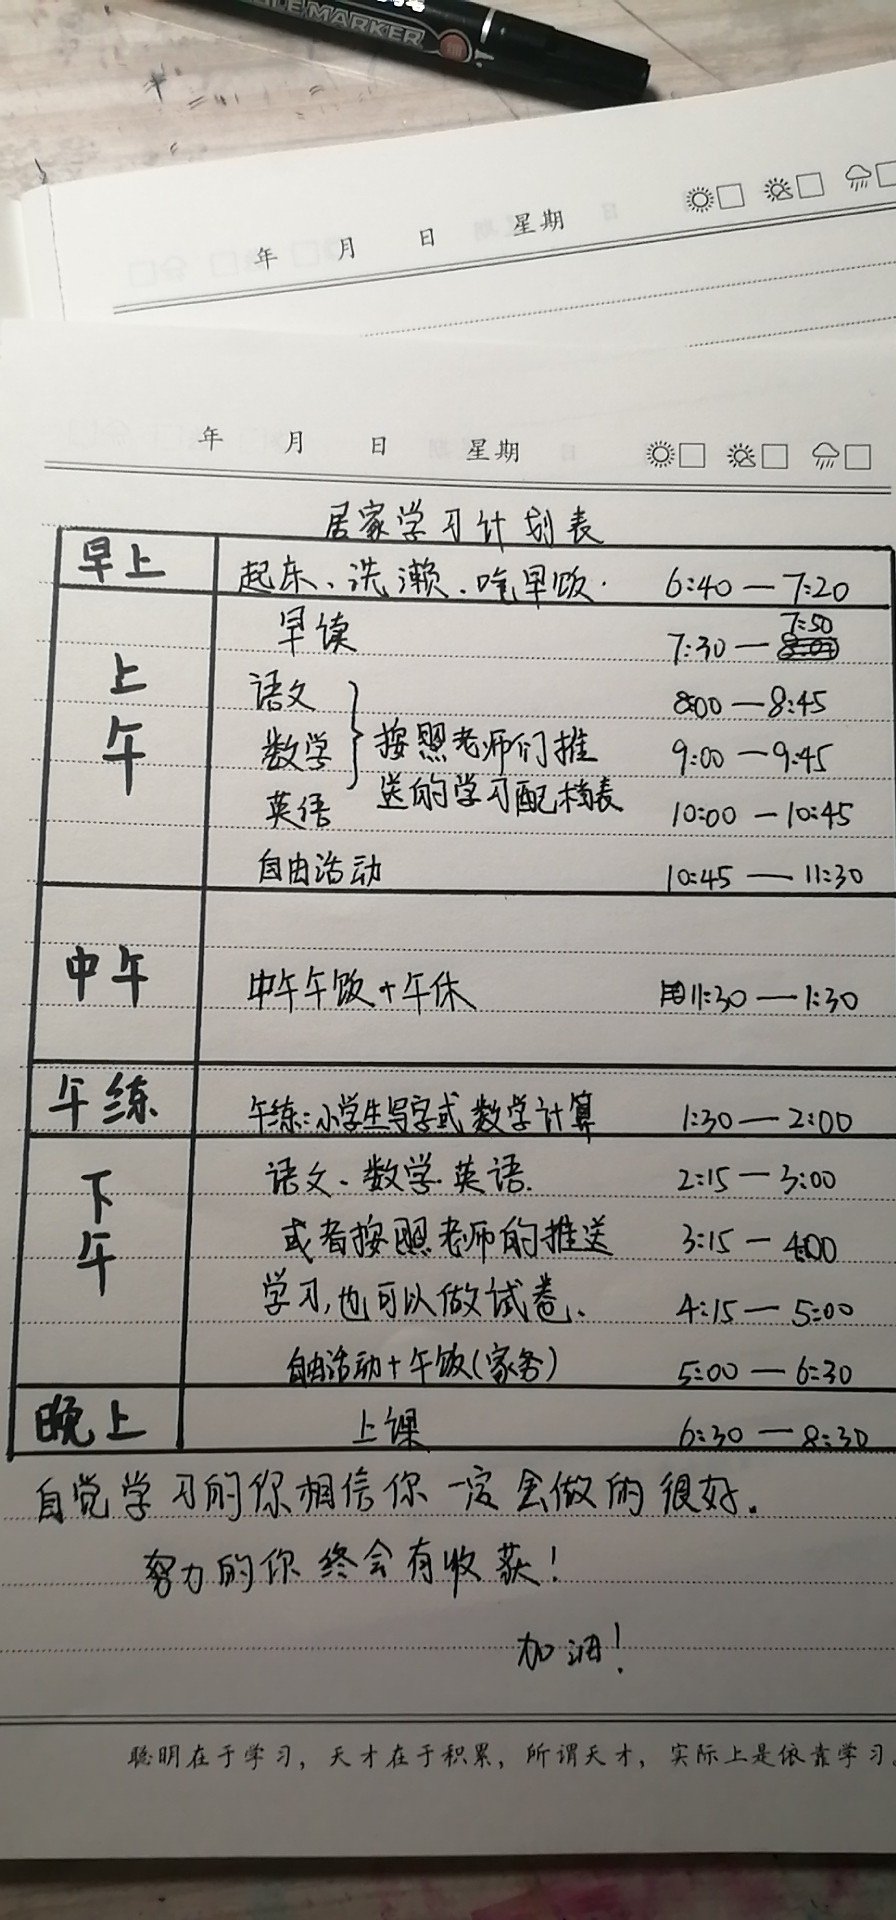 MARKER
细
年 月 日 星期
年 月 日 星期
居家学习计划表
早上 起床、洗漱、吃早饭. 6:40—7:20
上午
早读 7:30—7:50
语文 8:00—8:45
数学 按照老师们推 9:00—9:45
送的学习配档表
英语 10:00—10:45
自由活动 10:45—11:30
中午 中午午饭+午休 11:30—1:30
午练 午练:小学生写字或数学计算 1:30—2:00
下午
语文、数学.英语. 2:15—3:00
或者按照老师的推送 3:15—4:00
学习,也可以做试卷. 4:15—5:00
自由活动+午饭(家务) 5:00—6:30
晚上 上课 6:30—8:30
自觉学习的你相信你一定会做的很好.
努力的你终会有收获!
加油!
聪明在于学习，天才在于积累，所谓天才，实际上是依靠学习。